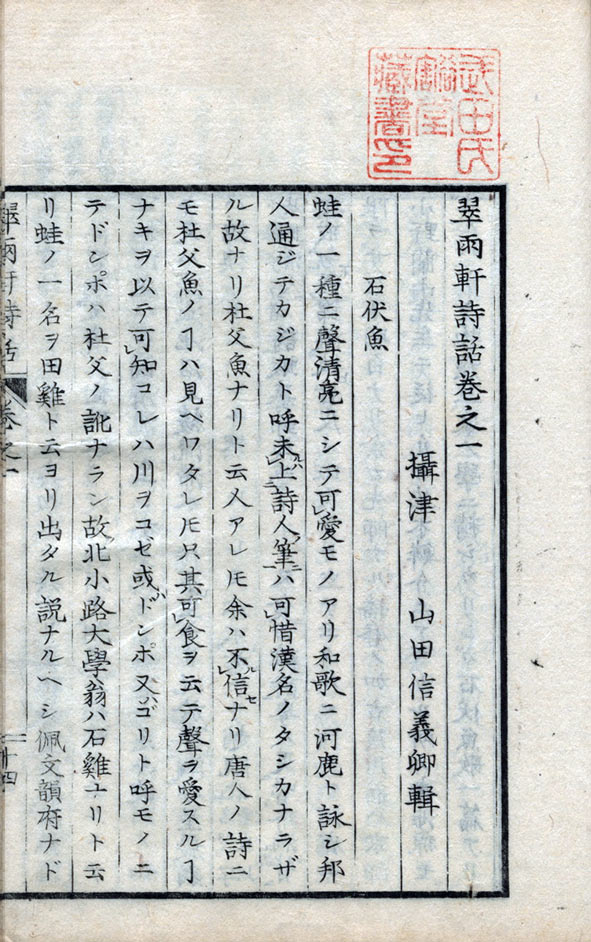 武田氏
鶴堂
藏書印
翠雨軒詩話巻之一
攝津 山田信義卿輯
石伏魚
蛙ノ一種ニ聲清亮ニシテ可レ愛モノアリ和歌ニ河鹿ト詠シ邦
人通ジテカジカト呼未レルハ上ニ詩人ノ筆ニ一ハ可レ惜漢名ノタシカナラザ
ル故ナリ杜父魚ナリト云人アレ𪜈余ハ不レルセ信ナリ唐人ノ詩ニ
モ杜父魚ノヿハ見ヘワタレ𪜈只其可レ食ヲ云テ聲ヲ愛スルヿ
ナキヲ以テ可レ知コレハ川ヲコゼ或ハドンポ又ゴリト呼モノニ
テドンポハ杜父ノ訛ナラン故北小路大學翁ハ石雞ナリト云
リ蛙ノ一名ヲ田雞ト云ヨリ出タル説ナルヘシ佩文韻府ナド
翠雨軒詩話 巻之一 十四